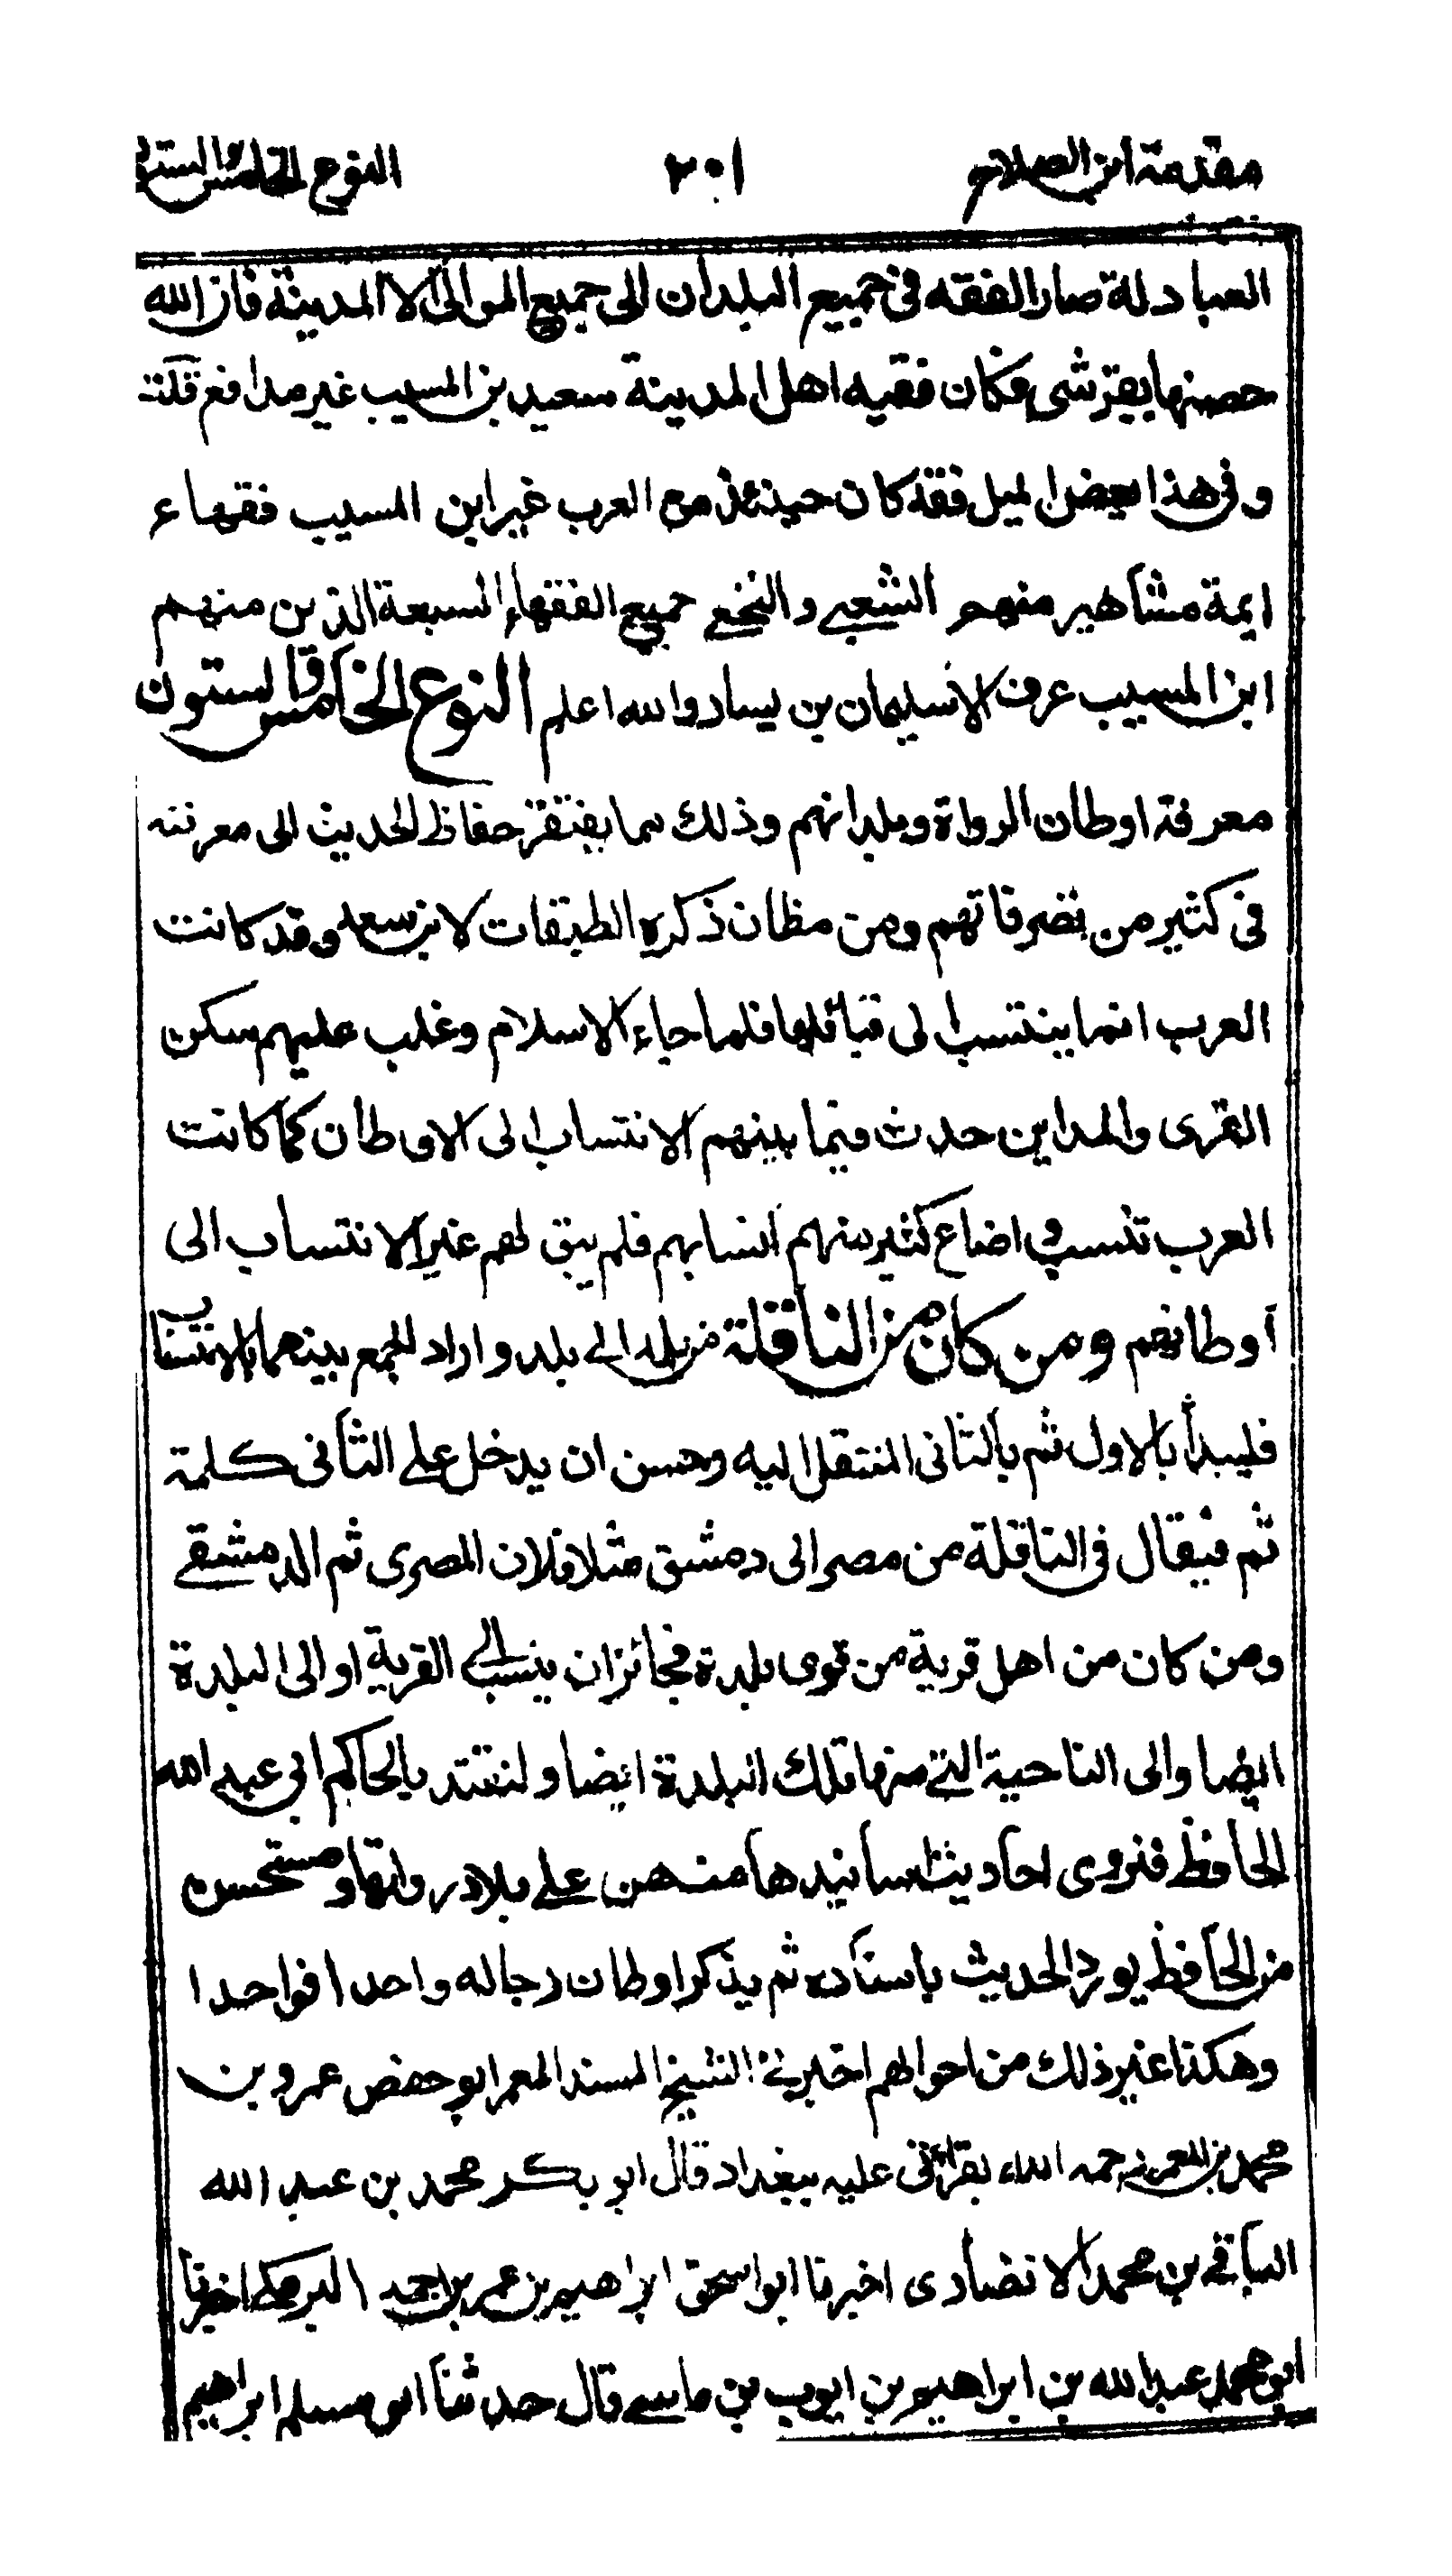 مقدمة ابن الصلاح ٢٠١ النوع الخامس والستون
العبادلة صار الفقه فى جميع البلدان الى جميع الموالى الا المدينة فان الله
حصنها بقرشى فكان فقيه اهل المدينة سعيد بن المسيب غير مدافع قلت
وفى هذا بعض الميل فقد كان حينئذ من العرب غير ابن المسيب فقهاء
ايمة مشاهير منهم الشعبے والنخعے جميع الفقهاء السبعة الذين منهم
ابن المسيب عرف الا سليمان بن يسار والله اعلم النوع الخامس والستون
معرفة اوطان الرواة وبلدانهم وذلك مما يفتقر حفاظ الحديث الى معرفته
فى كثير من تصرفاتهم ومن مظان ذكره الطبقات لابن سعد وقد كانت
العرب انما ينتسب الى قبائلها فلما جاء الاسلام وغلب عليهم سكن
القرى والمداين حدث فيما بينهم الانتساب الى الاوطان كما كانت
العرب تنسب واضاع كثير منهم انسابهم فلم يبق لهم غير الانتساب الى
اوطانهم ومن كان من الناقلة من بلد الے بلد واراد الجمع بينهما بالانتساب
فليبدأ بالاول ثم بالثانى المنتقل اليه وحسن ان يدخل علے الثانى كلمة
ثم فيقال فى الناقلة من مصر الى دمشق مثلا فلان المصرى ثم الدمشقے
ومن كان من اهل قرية من قرى بلدة فجائز ان ينسب الے القرية او الى البلدة
ايضا والى الناحية التے منها تلك البلدة ايضا ولنقتد بالحاكم ابى عبد الله
الحافظ فنروى احاديث باسانيدها منبهين علے بلاد رواتها ومستحسن
من الحافظ يورد الحديث باسناده ثم يذكر اوطان رجاله واحدا فواحدا
وهكذا غير ذلك من احوالهم اخبرنے الشيخ المسند المعمر ابو حفص عمرو بن
محمد بن المعمر رحمه الله بقرائتى عليه ببغداد قال ابو بكر محمد بن عبد الله
الباقے بن محمد الانصارى اخبرنا ابو اسحق ابراهيم بن عمر بن احمد البرمكے اخبرنا
ابو محمد عبد الله بن ابراهيم بن ايوب بن ماسے قال حدثنا ابو مسلم ابراهيم